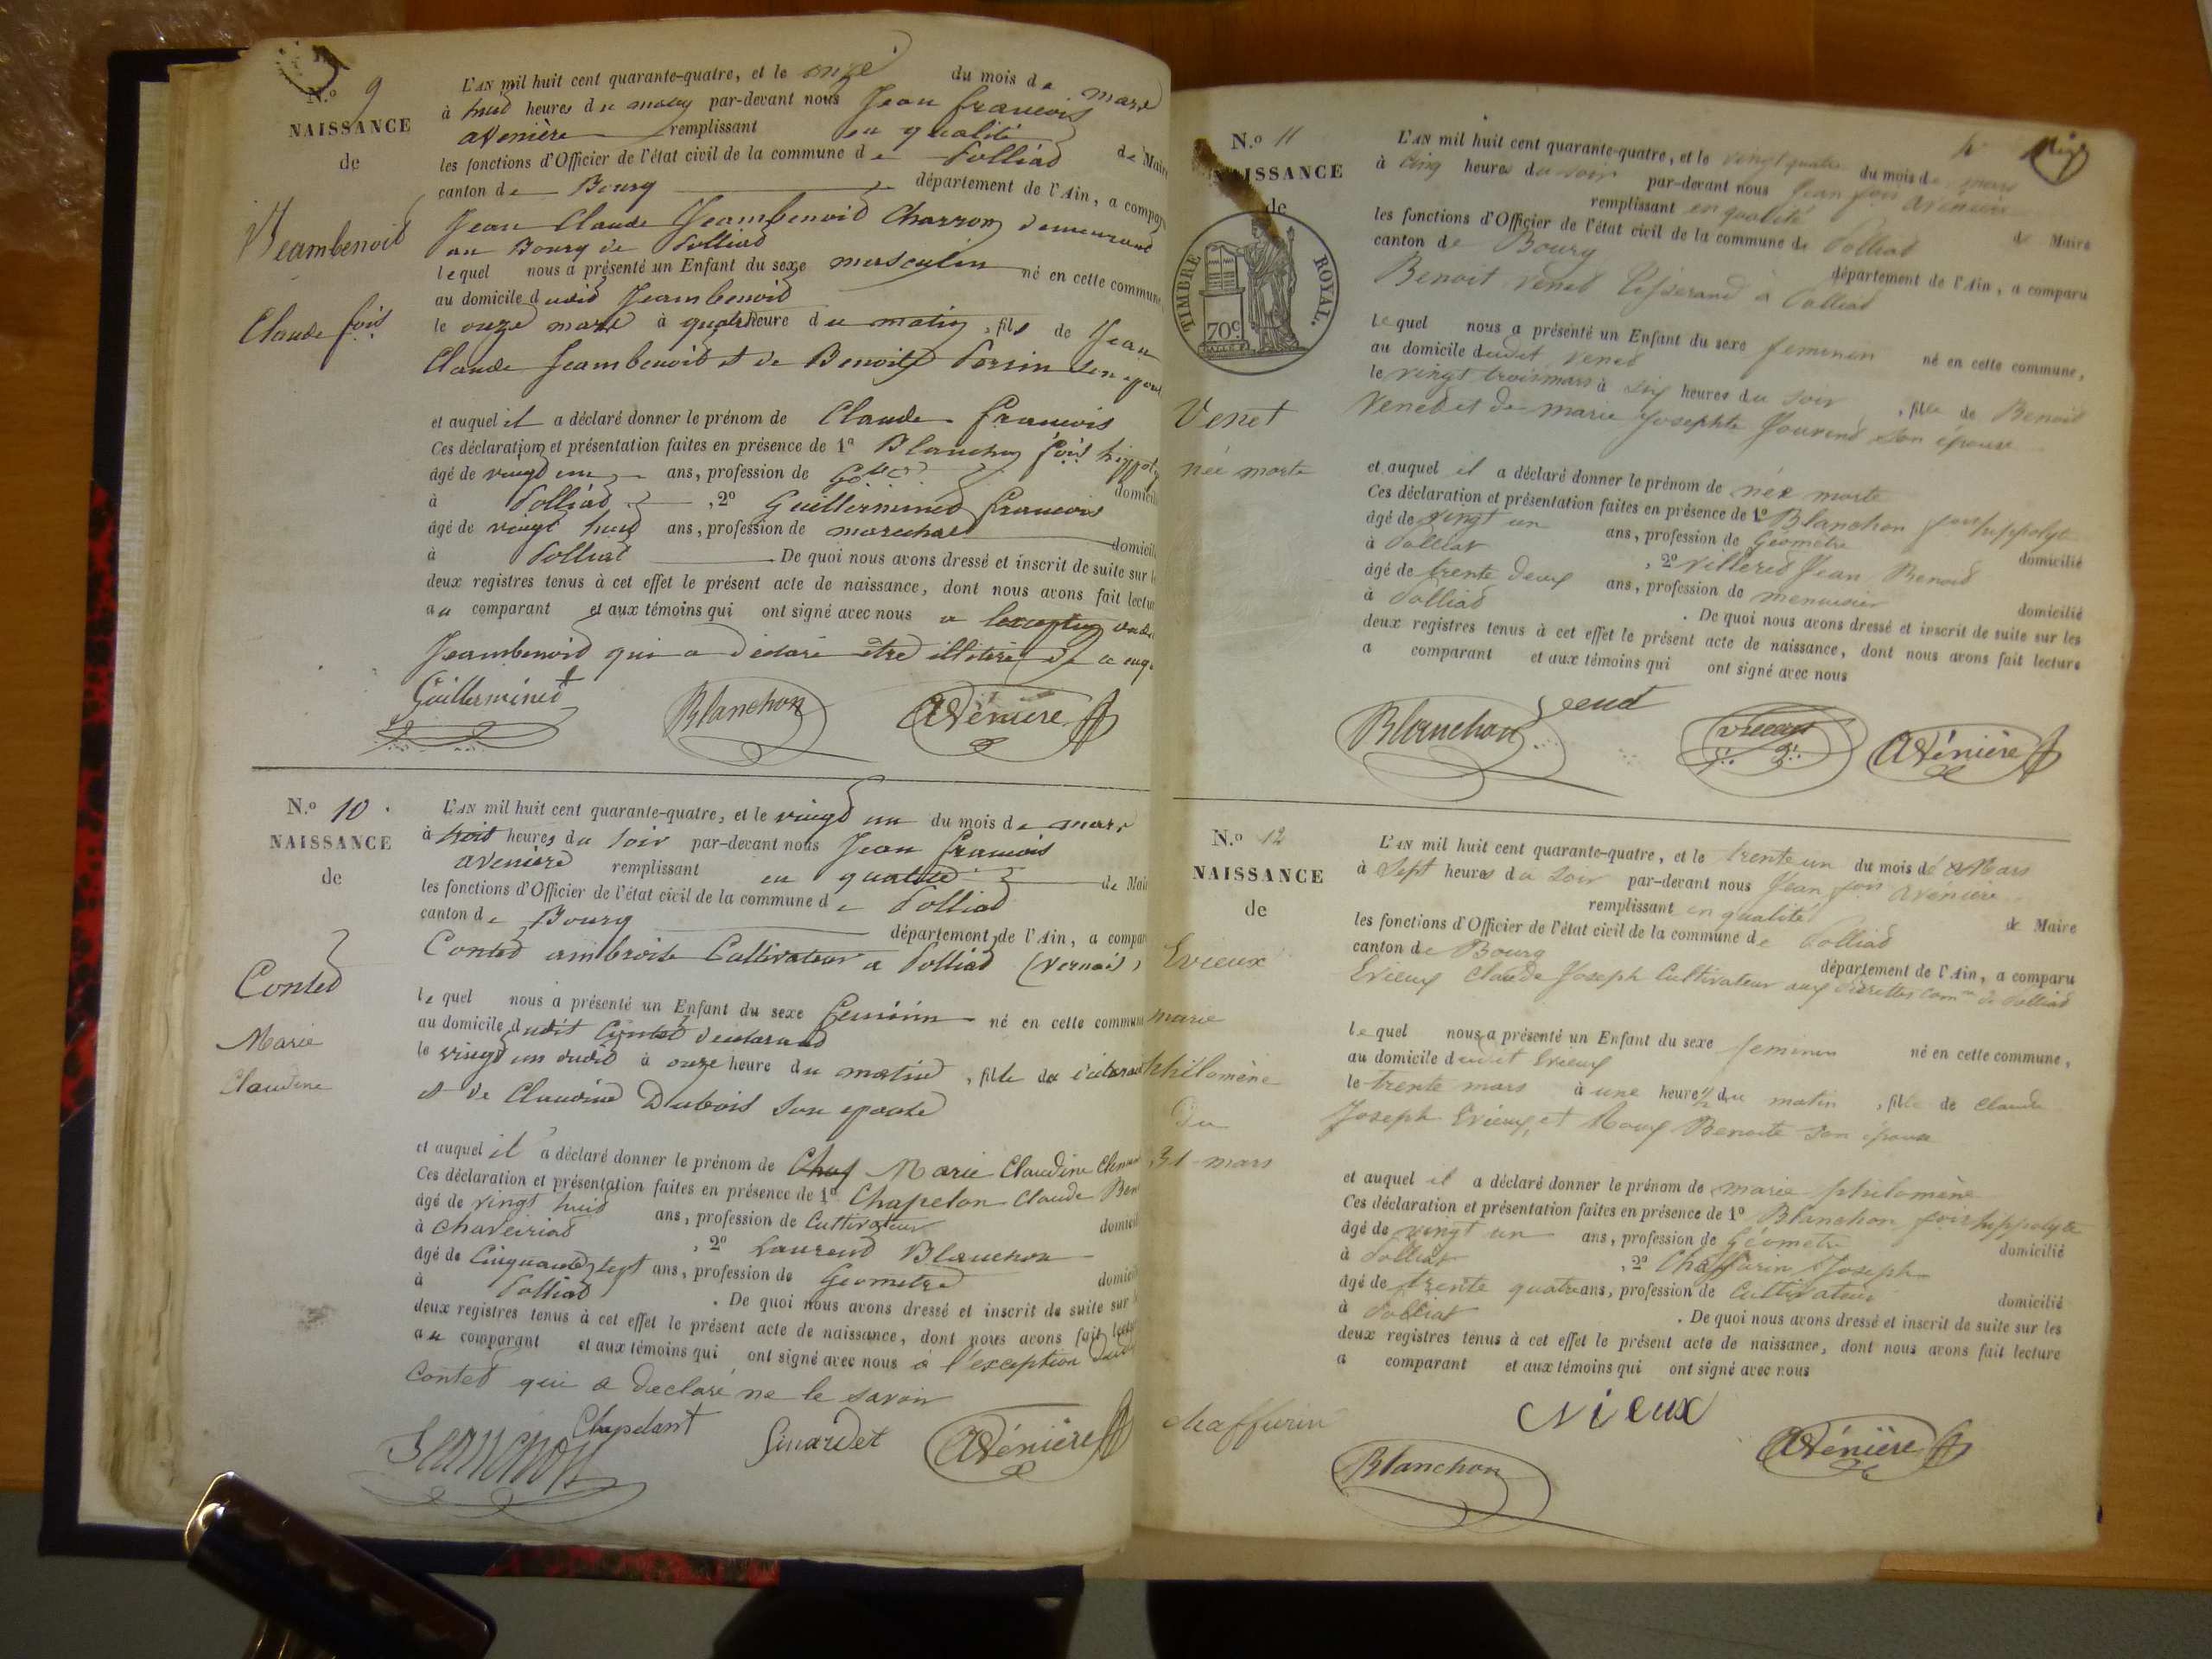 N.º 9
NAISSANCE
de
Jeambenoit
Claude fois
L'AN mil huit cent quarante-quatre, et le onze du mois de mars
à huit heures du matin par-devant nous Jean francois
avenière remplissant en qualité de Maire
les fonctions d'Officier de l'état civil de la commune de Polliat
canton de Bourg département de l'Ain, a comparu
Jean Claude Jeambenoit Charron demeurant
au Bourg de Polliat
lequel nous a présenté un Enfant du sexe masculin né en cette commune
au domicile dudit Jeambenoit
le onze mars à quatre heure du matin, fils de Jean
Claude Jeambenoit et de Benoite son
et auquel il a déclaré donner le prénom de Claude francois
Ces déclaration et présentation faites en présence de 1º Blanchon fois hippolyte
âgé de vingt un ans, profession de domicilié
à Polliat, 2º Guillerminet francois
âgé de vingt huit ans, profession de marechal domicilié
à Polliat De quoi nous avons dressé et inscrit de suite sur les
deux registres tenus à cet effet le présent acte de naissance, dont nous avons fait lecture
au comparant et aux témoins qui ont signé avec nous a lexception dudit
Jeambenoit qui a déclaré être illitéré de ce enquis
Guillerminet Blanchon Avénière
N.º 10
NAISSANCE
de
Contet
Marie
Claudine
L'AN mil huit cent quarante-quatre, et le vingt un du mois de mars
à trois heures du soir par-devant nous Jean francois
avenière remplissant en qualité de Maire
les fonctions d'Officier de l'état civil de la commune de Polliat
canton de Bourg département de l'Ain, a comparu
Contet ambroise Cultivateur a Polliat (Vernais)
lequel nous a présenté un Enfant du sexe feminin né en cette commune
au domicile dudit Contet declarant
le vingt un dudit à onze heure du matin, fille du
et de Claudine Dubois son epouse
et auquel il a déclaré donner le prénom de Marie Claudine
Ces déclaration et présentation faites en présence de 1º Chapelon Claude
âgé de vingt huit ans, profession de Cultivateur domicilié
à Chaveiriat, 2º Laurent Blanchon
âgé de Cinquante sept ans, profession de Geometre domicilié
à Polliat. De quoi nous avons dressé et inscrit de suite sur les
deux registres tenus à cet effet le présent acte de naissance, dont nous avons fait lecture
au comparant et aux témoins qui ont signé avec nous à l'exception dudit
Contet qui a declaré ne le savoir
Chapelant
Blanchon Sinardet Avénière
N.º 11
NAISSANCE
de
TIMBRE ROYAL.
70c.
Venet
née morte
L'AN mil huit cent quarante-quatre, et le vingt quatre du mois de mars
à cinq heures du soir par-devant nous Jean fois avénière
remplissant en qualité de Maire
les fonctions d'Officier de l'état civil de la commune de Polliat
canton de Bourg département de l'Ain, a comparu
Benoit Venet tisserand à Polliat
lequel nous a présenté un Enfant du sexe feminin né en cette commune,
au domicile dudit Venet
le vingt trois mars à six heures du soir, fille de Benoit
Venet et de marie Josephte Jouvent son épouse
et auquel il a déclaré donner le prénom de née morte
Ces déclaration et présentation faites en présence de 1º Blanchon fois hippolyte
âgé de vingt un ans, profession de Géomètre domicilié
à Polliat, 2º Villeret Jean Benoit
âgé de trente deux ans, profession de menuisier domicilié
à Polliat. De quoi nous avons dressé et inscrit de suite sur les
deux registres tenus à cet effet le présent acte de naissance, dont nous avons fait lecture
a comparant et aux témoins qui ont signé avec nous
Blanchon Avénière
N.º 12
NAISSANCE
de
Evieux
marie
philomène
Du
31 mars
L'AN mil huit cent quarante-quatre, et le trente un du mois de Mars
à Sept heures du soir par-devant nous Jean fois avénière
remplissant en qualité de Maire
les fonctions d'Officier de l'état civil de la commune de Polliat
canton de Bourg département de l'Ain, a comparu
Evieux Claude Joseph Cultivateur aux com.ne de Polliat
lequel nous a présenté un Enfant du sexe feminin né en cette commune,
au domicile dudit Evieux
le trente mars à une heure 1/2 du matin, fille de Claude
Joseph Evieux, et Roux Benoite son épouse
et auquel il a déclaré donner le prénom de marie philomène
Ces déclaration et présentation faites en présence de 1º Blanchon fois hippolyte
âgé de vingt un ans, profession de Géomètre domicilié
à Polliat, 2º Chaffurin Joseph
âgé de trente quatre ans, profession de Cultivateur domicilié
à Polliat. De quoi nous avons dressé et inscrit de suite sur les
deux registres tenus à cet effet le présent acte de naissance, dont nous avons fait lecture
a comparant et aux témoins qui ont signé avec nous
chaffurin Blanchon evieux Avénière